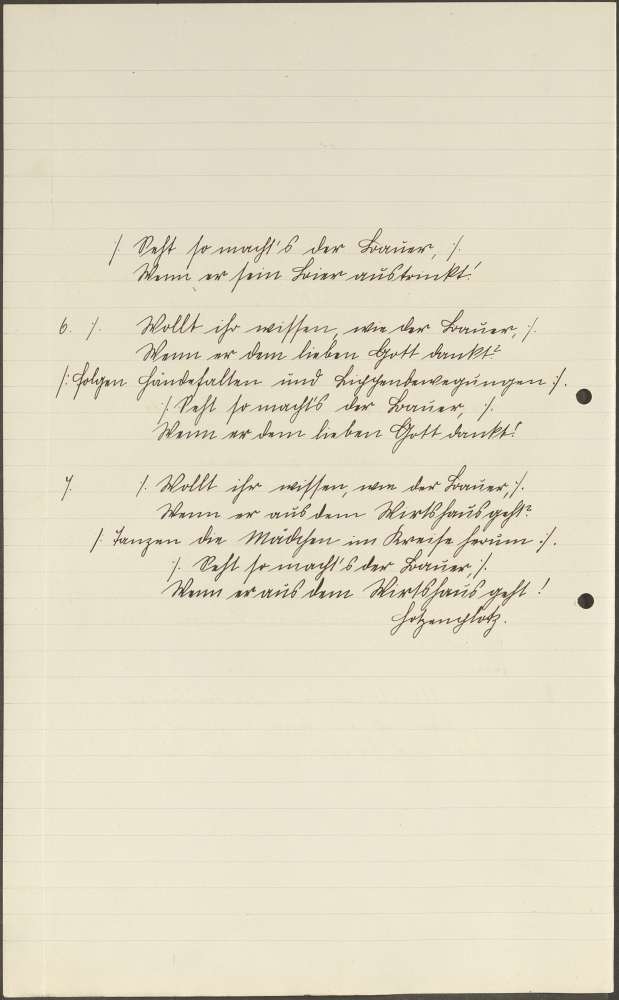 /. Seht so macht's der Bauer, :/.
Wenn er sein Bier austrinkt!
6. /. Wollt ihr wissen, wie der Bauer, :/.
Wenn er dem lieben Gott dankt?
/: folgen Händefalten und Lippenbewegungen :/.
/. Seht so macht's der Bauer, /.
Wenn er dem lieben Gott dankt!
7. /. Wollt ihr wissen, wie der Bauer, :/.
Wenn er aus dem Wirtshaus geht?
/. Tanzen die Mädchen im Kreise herum :/.
/. Seht so macht's der Bauer, /.
Wenn er aus dem Wirtshaus geht!
Hotzenplotz.